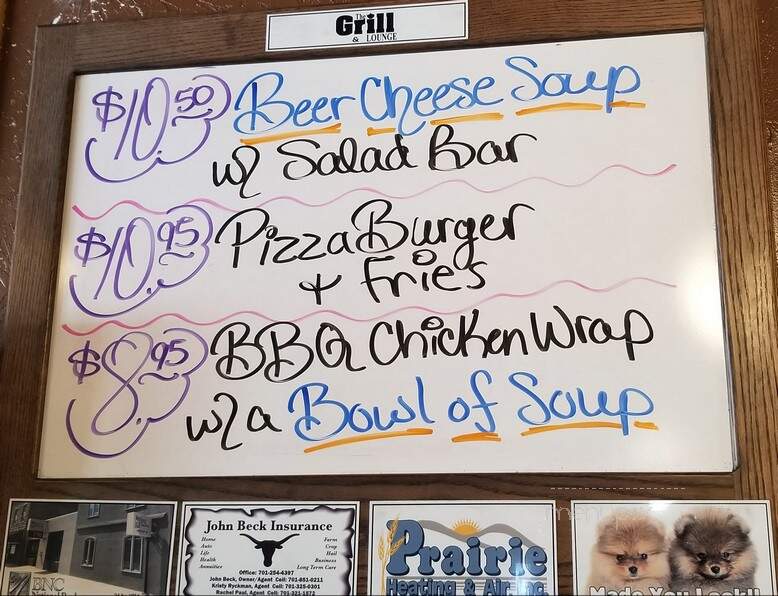 The
Grill
& LOUNGE
$10.50 Beer Cheese Soup
w/ Salad Bar
$10.95 Pizza Burger
+ Fries
$8.95 BBQ Chicken Wrap
w/ a Bowl of Soup
BNC
John Beck Insurance
Home
Auto
Life
Health
Annuities
Farm
Crop
Hail
Business
Long Term Care
Office: 701-254-4397
John Beck, Owner/Agent Cell: 701-851-0211
Kristy Ryckman, Agent Cell: 701-325-0301
Rachel Paul, Agent Cell: 701-321-1872
Prairie
Heating & Air, Inc
Made You Look!!